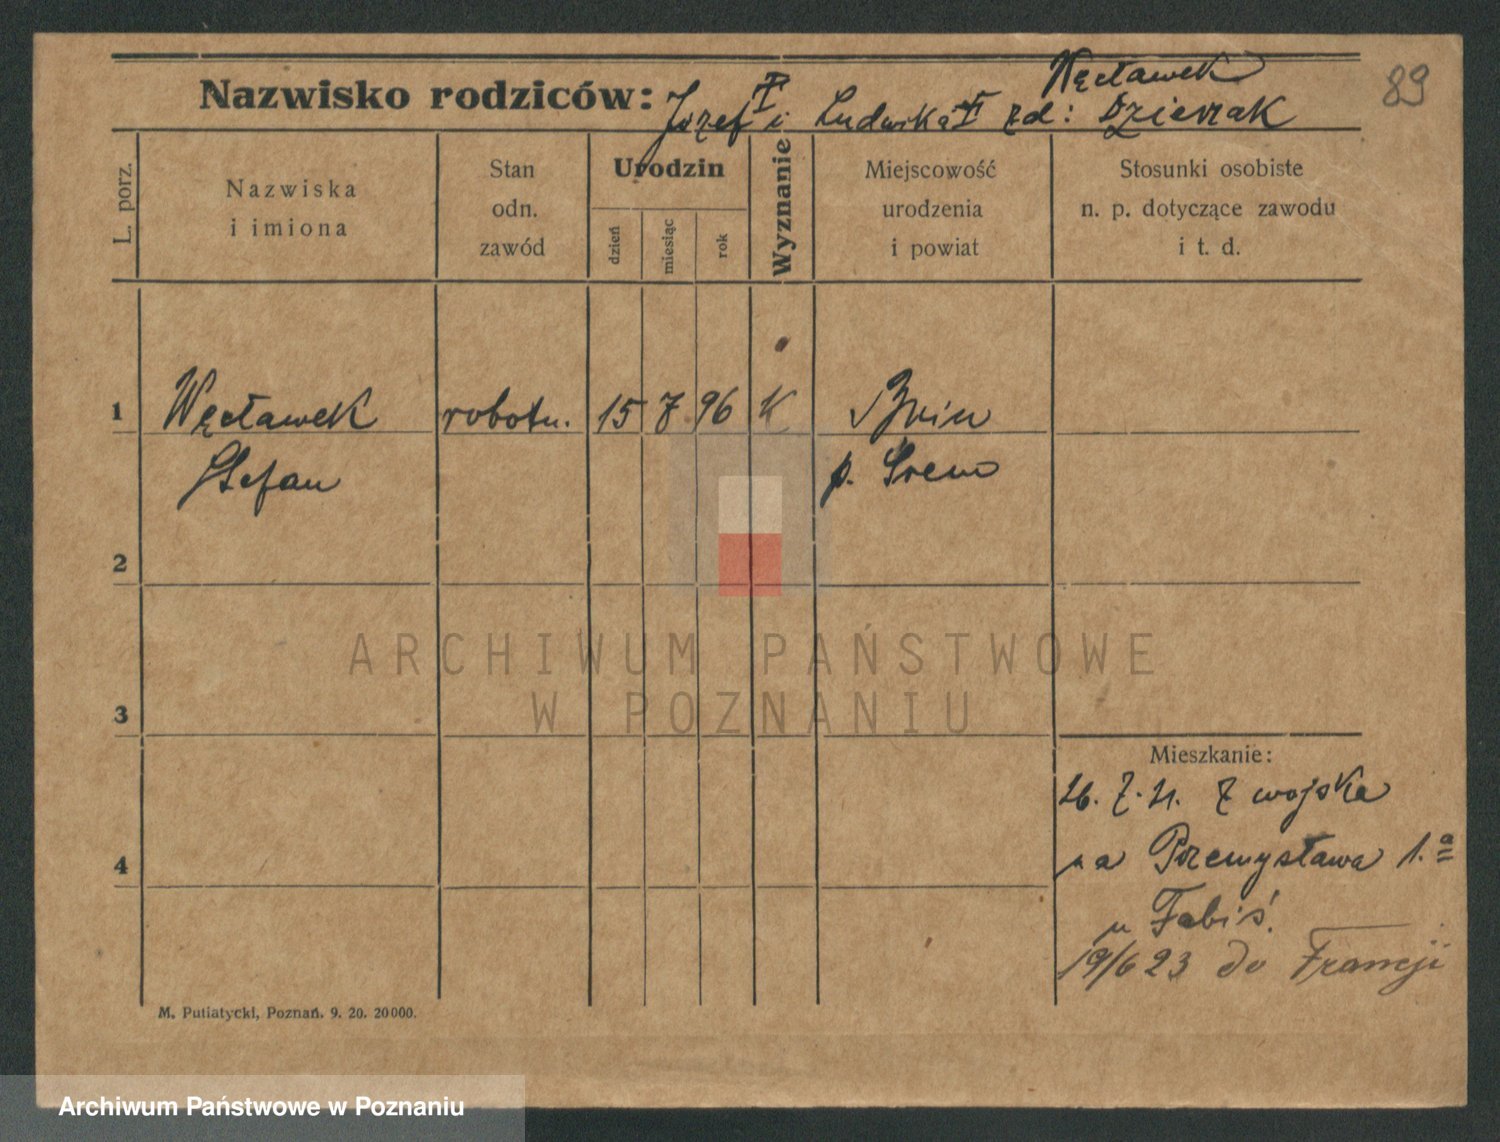 Węcławek
89
Nazwisko rodziców: Józef i Ludwika zd: Dzierzak
L. porz.
Nazwiska
i imiona
Stan
odn.
zawód
Urodzin
dzień
miesiąc
rok
Wyznanie
Miejscowość
urodzenia
i powiat
Stosunki osobiste
n. p. dotyczące zawodu
i t. d.
1 Węcławek robotn. 15 7 96 K Bnin
Stefan p. Śrem
2
ARCHIWUM PAŃSTWOWE
W POZNANIU
3
Mieszkanie:
26. 7. 21. z wojska
4 na Przemysława 1.a
u Fabiś.
19/6 23 do Francji
M. Putiatycki, Poznań. 9. 20. 20000.
Archiwum Państwowe w Poznaniu